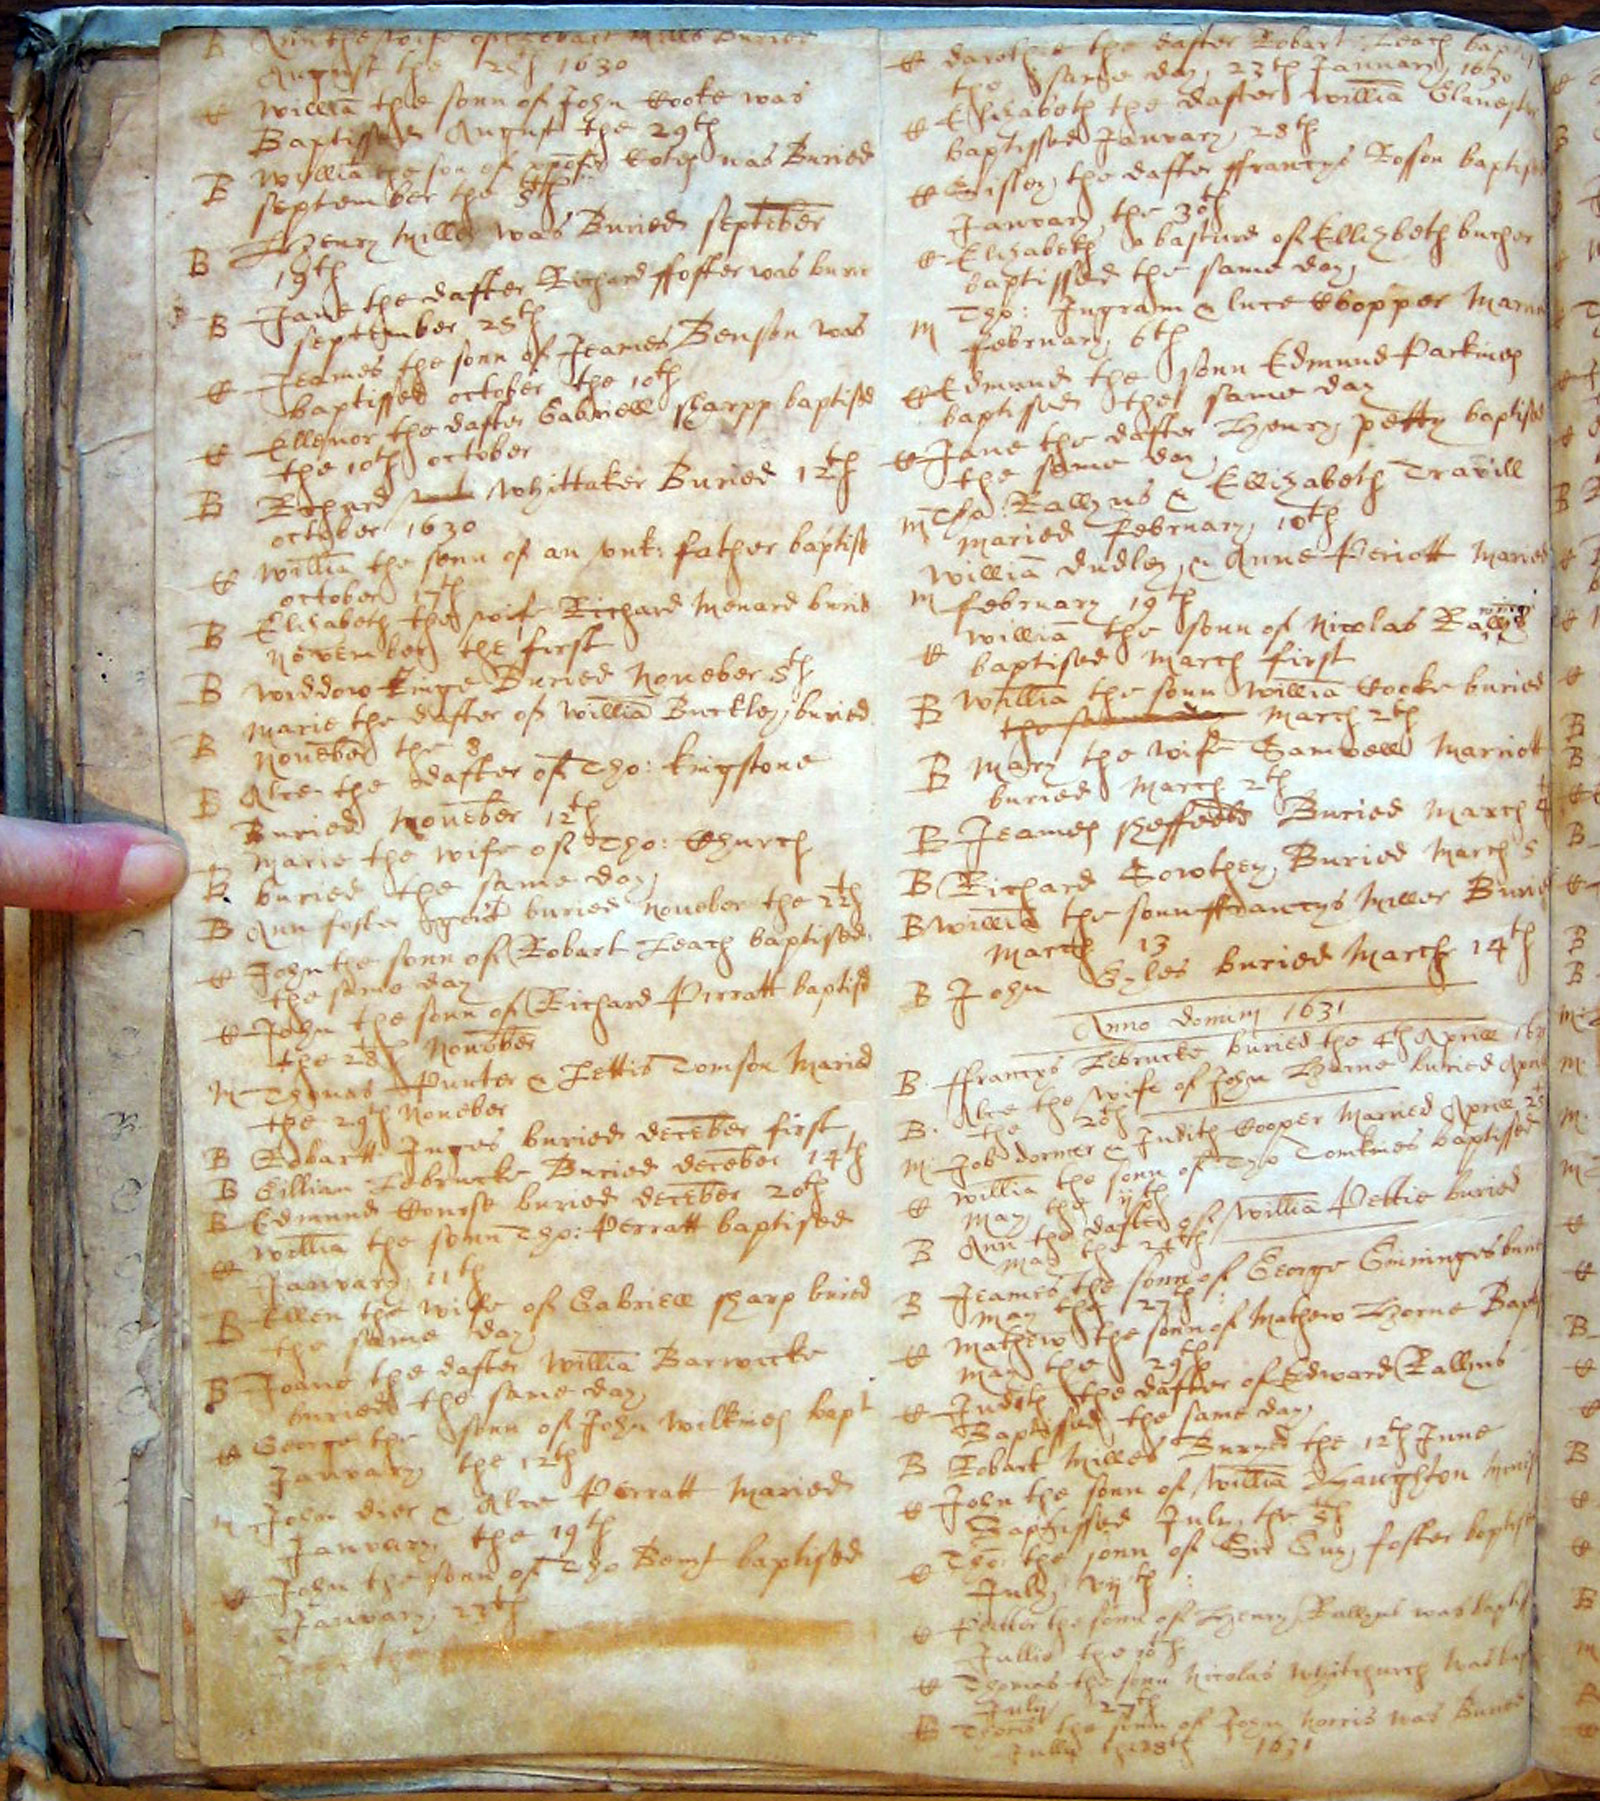 B Ann the wife of Robart Mills Buried
August the 1630
C Williā the sonn of John Cooke was
Baptissed August the 29th
B Williā the son of Cotes was Buried
september the 8th
B Henry Miller was Buried septēber
19th
B Jane the dafter Richard ffoster was buri
september 25th
C Jeames the sonn of Jeames Benson was
baptissed october the 10th
C Ellenor the dafter Gabriell sharpp baptised
the 10th october
B Richard Whittaker Buried 12th
october 1630
C Williā the sonn of an unk: father baptise
october 17th
B Elizabeth the wife Richard Menard buried
November the first
B Widdow Kinge Buried Noueber 5th
Marie the dafter of Williā Buckley buried
B Nouēber the 8
B Alce the dafter of Tho: Kingstone
Buried Nouēber 12th
Marie the wife of Tho: Church
B buried the same day
B Ann foster buried Noueber the 22th
C John the sonn of Robart Leach baptised
the same day
C John the sonn of Richard Pirratt baptisd
the 28th Nouēber
M Thomas Punter & Lettis Tomson Maried
the 29th Noueber
B Robartt Inges buried decēber first
B Gillian Lebrucke Buried decēber 14th
B Edmund Course buried decēber 20th
C Williā the sonn Tho: Perratt baptised
January 11th
B Ellen the wife of Gabriell sharp buried
the same day
B Joane the dafter Williā Barwicke
buried the same day
C George the sonn of John Wilkines bapt
January the 12th
M John dier & Alce Perratt Maried
January the 19th
C John the sonn of Tho baptised
January 23th
C the dafter Robart Leach bapti
the same day 23th January 1630
C Elizabeth the dafter williā
baptissed January 28th
C Sissey the dafter ffrancys Rosson baptise
January the 30th
C Elizabeth a basturd of Ellizbeth bucher
baptissed the same day
M Tho: Ingram & luce Chopper Marri
february 6th
C Edmund the sonn Edmund Parkines
baptised the same day
C Jane the dafter Henry petty baptised
the same day
M Tho: Rallyns & Ellizabeth Travill
maried february 10th
Williā dudley & Anne Periott Maried
M february 19th
C Williā the sonn of Nicolas
baptised March first
B Williā the sonn Williā Cooke buried
the same day March 2th
B Mary the wife Samwell Marriott
buried March 2th
B Jeames sheffeeld Buried March 4
B Richard Sowthey Buried March 5
B Williā the sonn ffrancys Miller Buried
March 13
B John Gyles buried March 14th
Anno domini 1631
B ffrancys Lebrucke buried the 4th Aprill 1631
Alce the wife of John Horne buried Apri
B the 20th
M Job dormer & Judith Cooper Married Aprill 25
C Williā the sonn of Tho Tomkines baptissed
May the
B Ann the dafter of Williā Pettie buried
May the 24th
B Jeames the sonn of George Gininges buri
May the 27th
C Mathew the sonn of Mathew Horne Bapt
May the 29th
C Judith the dafter of Edward Rallins
Baptissed the same day
B Robart Milles Buryed the 12th June
C John the sonn of Williā Haughton
Baptissed July the 5th
C Tho: the sonn of Sir Guy foster baptise
July
C the sonn of Henry Rallyns was baptis
Jullie the 10th
C Thomas the sonn Nicolas Whitchurch was bap
July 27th
B the sonn of John Norris was Buried
1631